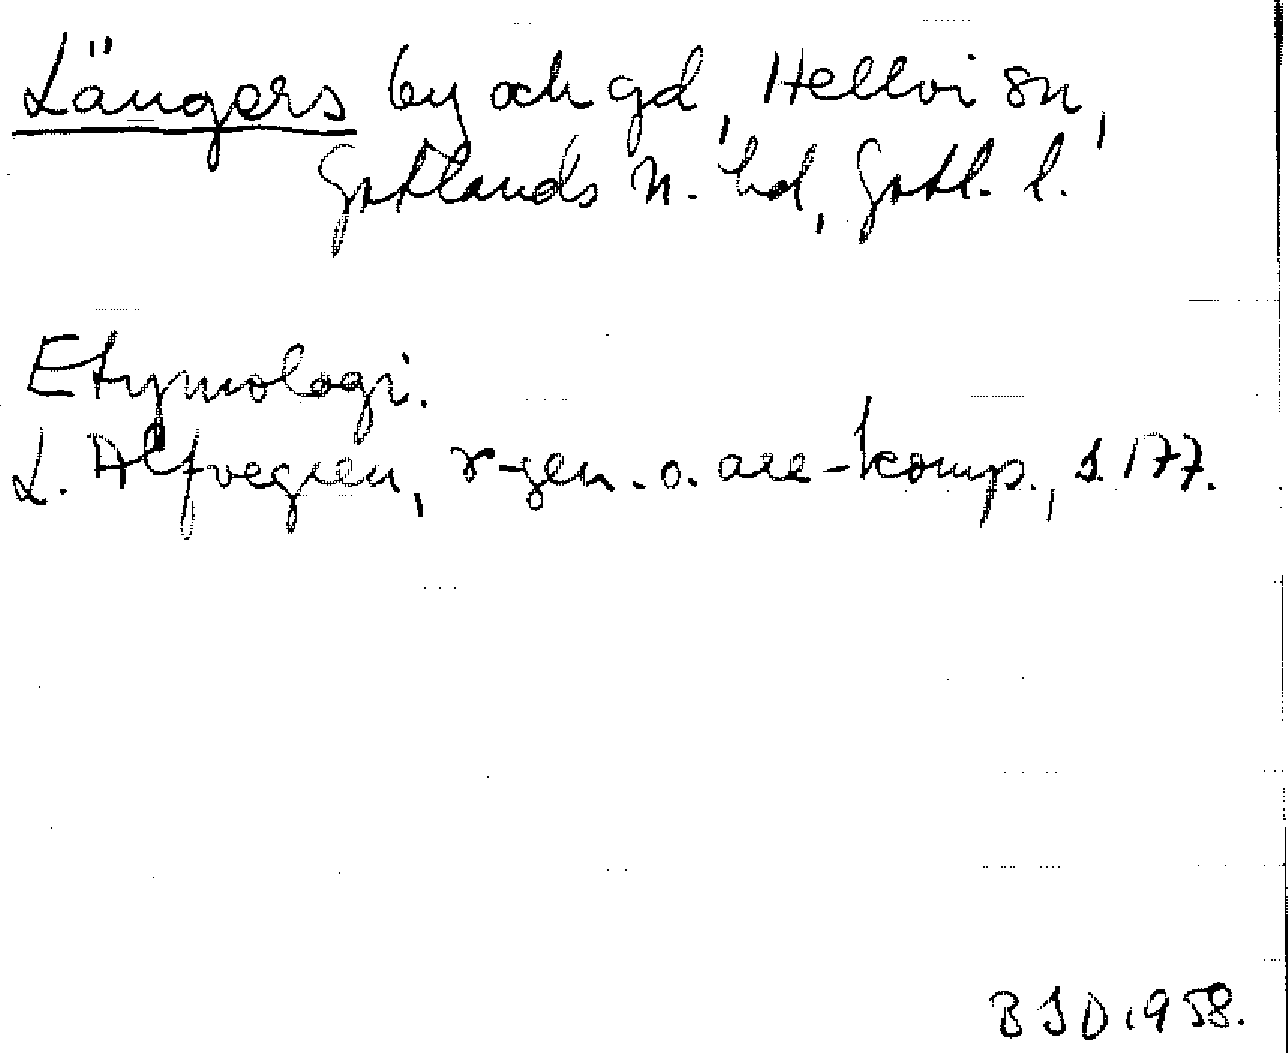 Längers by och gd, Hellvi sn,
Gotlands N. hd, Gotl. l.
Etymologi.
L. Alfvegren, r-gen. o. are-komp., s. 177.
BSD 1958.